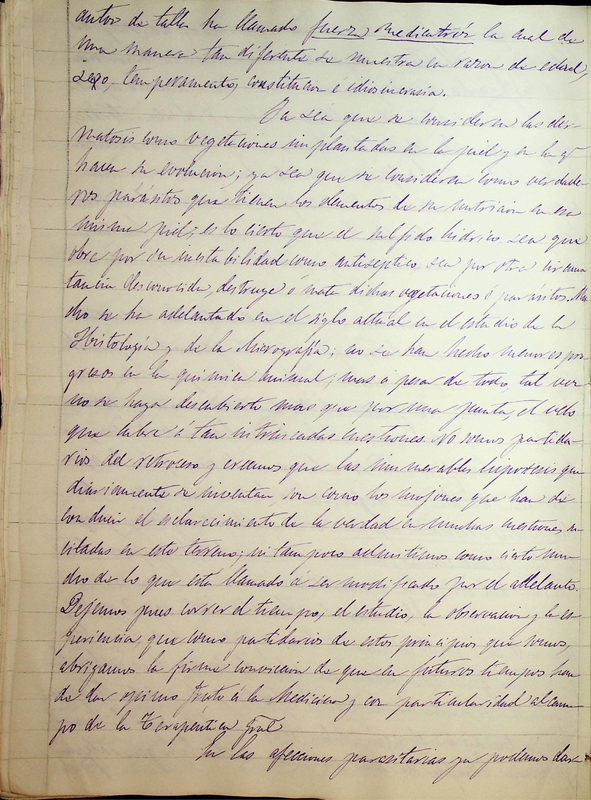 autor de talla ha llamado fuerza medicatriz la cual de
una manera tan diferente se muestra en razon de edad,
sexo, temperamento, constitucion é idiosincrasia.
Ya sea que se consideren las der-
matosis como vegetaciones implantadas en la piel y en la q.
hacen su evolucion; ya sea que se consideren como verdade-
ros parásitos que tienen los elementos de su nutricion en esa
misma piel; es lo cierto que el sulfido hídrico, sea que
obre por su inestabilidad como antiséptico, sea por otra circuns
tancia desconocida, destruye o mata dichas vegetaciones ó parásitos. Mu-
cho se ha adelantado en el siglo actual en el estudio de la
Histología y de la Micrografía; no se han hecho menores pro-
gresos en la química animal; mas á pesar de todo tal vez
no se haya descubierto mas que por una punta, el velo
que cubre á tan intrincadas cuestiones. No somos partida-
rios del retroceso y creemos que las innumerables hipotesis que
diariamente se inventan son como los mojones que han de
conducir el esclarecimiento de la verdad en muchas cuestiones
citadas en este terreno; ni tampoco admitimos como cierto mu-
cho de lo que está llamado á ser modificado por el adelanto.
Dejemos pues correr el tiempo, el estudio, la observacion y la es-
periencia, que como partidarios de estos principios que somos,
abrigamos la firme conviccion de que en futuros tiempos han
de dar opimo fruto á la Medicina y con particularidad al cam-
po de la Terapeutica gral
En las afecciones parasitarias ya podemos dar